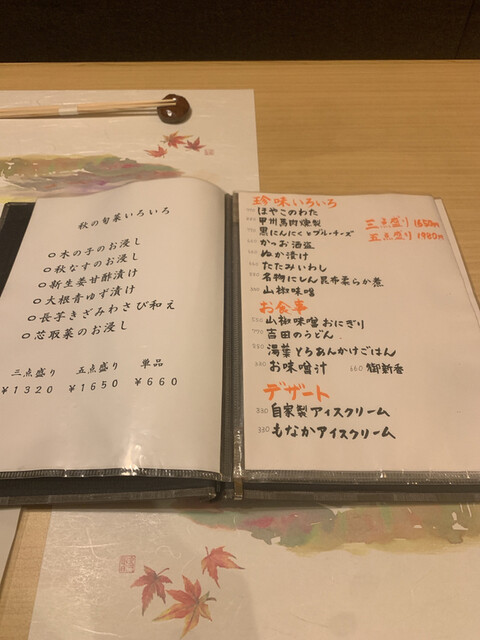 秋の旬菜いろいろ
○木の子のお浸し
○秋なすのお浸し
○新生姜甘酢漬け
○大根青ゆず漬け
○長芋きざみわさび和え
○芯取菜のお浸し
三点盛り 五点盛り 単品
¥1320 ¥1650 ¥660
珍味いろいろ
ほやこのわた
甲州馬肉燻製
黒にんにくとブルーチーズ
かつお酒盗
ぬか漬け
たたみいわし
名物にしん昆布柔らか煮
山椒味噌
三点盛り 1650円
五点盛り 1980円
お食事
550 山椒味噌おにぎり
770 吉田のうどん
550 湯葉とろあんかけごはん
お味噌汁 660 御新香
デザート
330 自家製アイスクリーム
330 もなかアイスクリーム